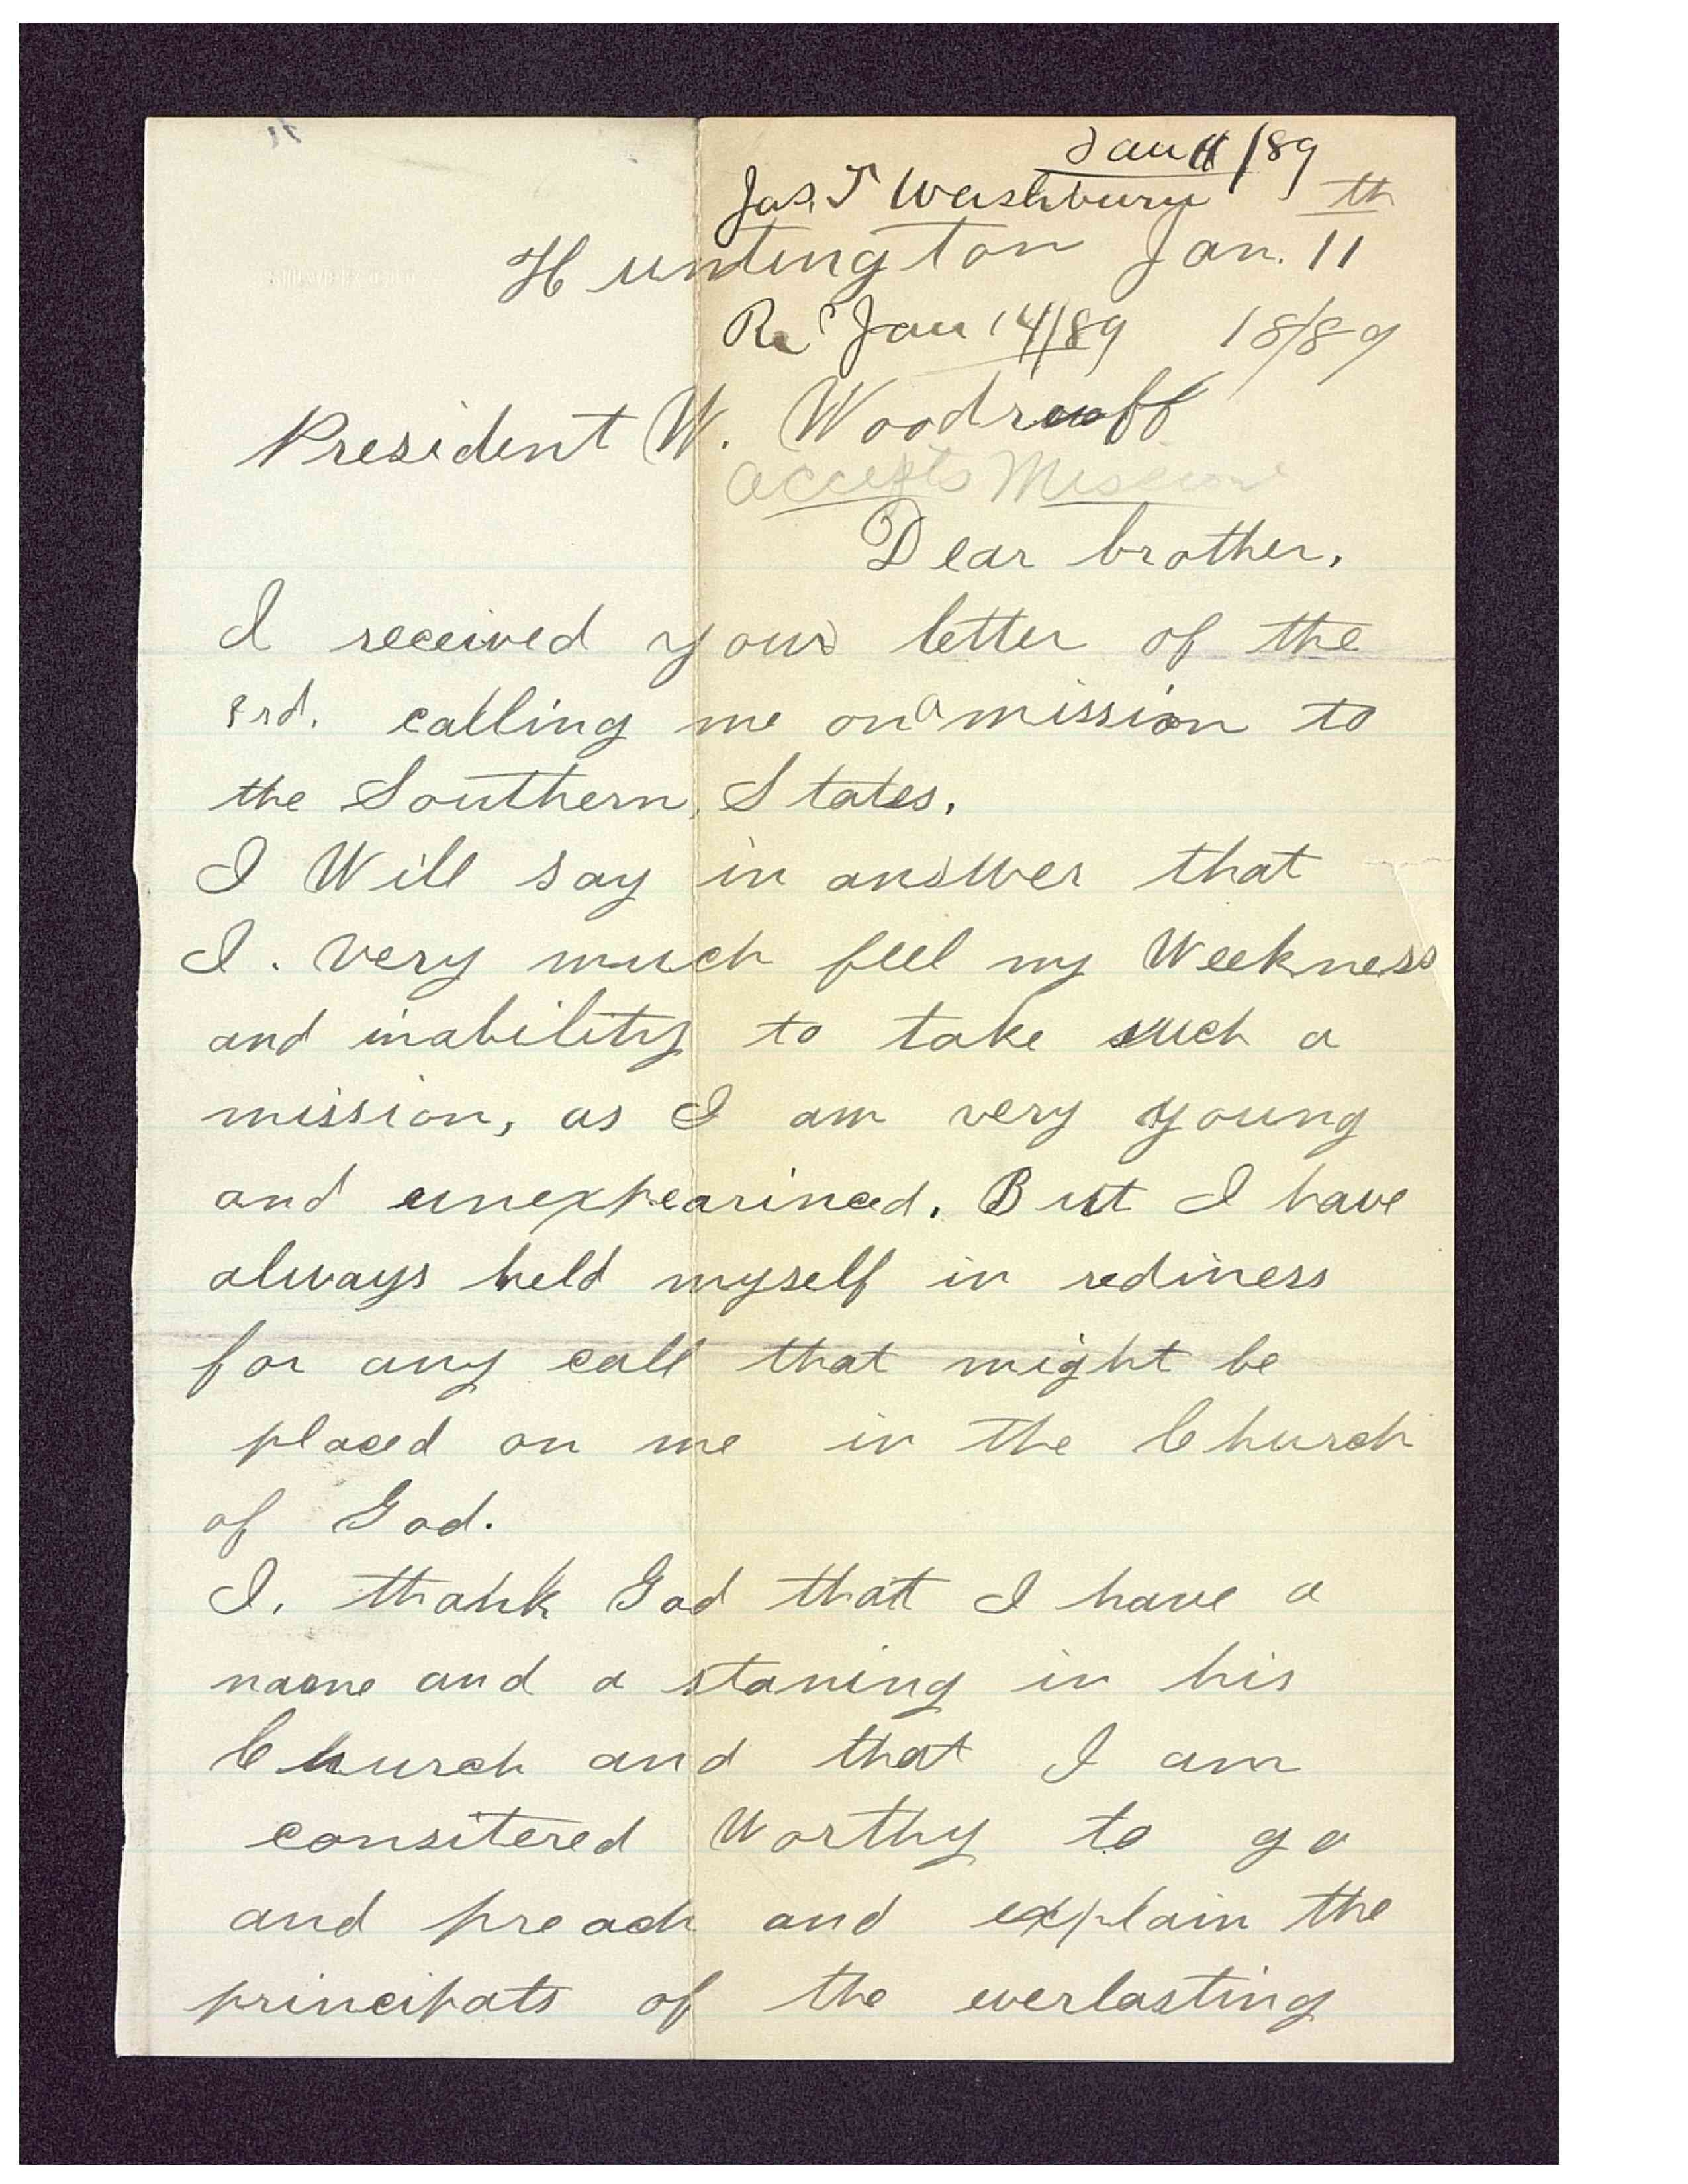 Jan 11/89
Jas. T Washburn
Huntington Jan. 11th
Rec Jan 14/89 18/89
President W. Woodruff
accepts Mission
Dear brother.
I received your letter of the
3rd. calling me on a mission to
the Southern, States.
I Will say in answer that
I. very much feel my Weekness
and inability to take such a
mission, as I am very young
and unexpearinced. But I have
always held myself in rediness
for any call that might be
placed on me in the Church
of God.
I. thank God that I have a
name and a staning in his
Church and that I am
consitered Worthy to go
and preach and explain the
principats of the everlasting